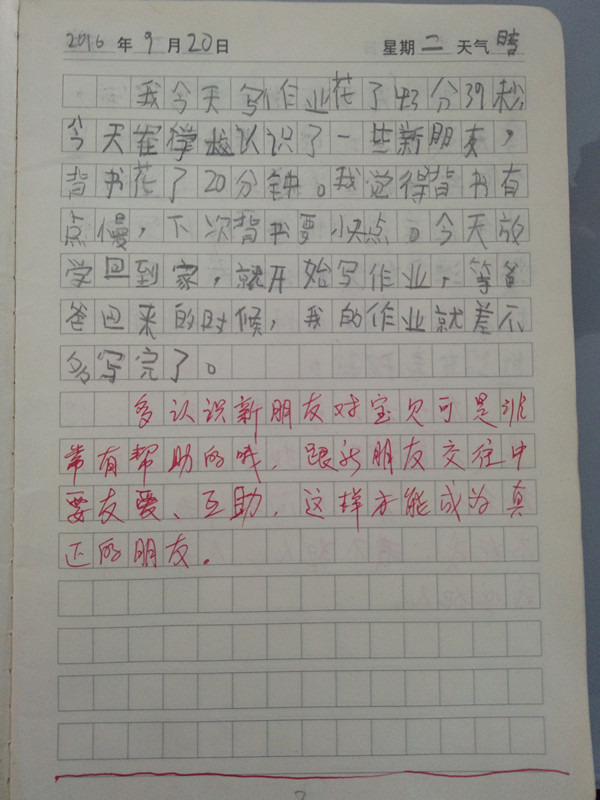 2016年9月20日 星期二 天气晴
我今天写作业花了43分39秒,
今天在学校认识了一些新朋友,
背书花了20分钟。我觉得背书有
点慢,下次背书要小快点。今天放
学回到家,就开始写作业,等爸
爸回来的时候,我的作业就差不
多写完了。
多认识新朋友对宝贝可是非
常有帮助的哦,跟新朋友交往中
要友爱、互助,这样才能成为真
正的朋友。